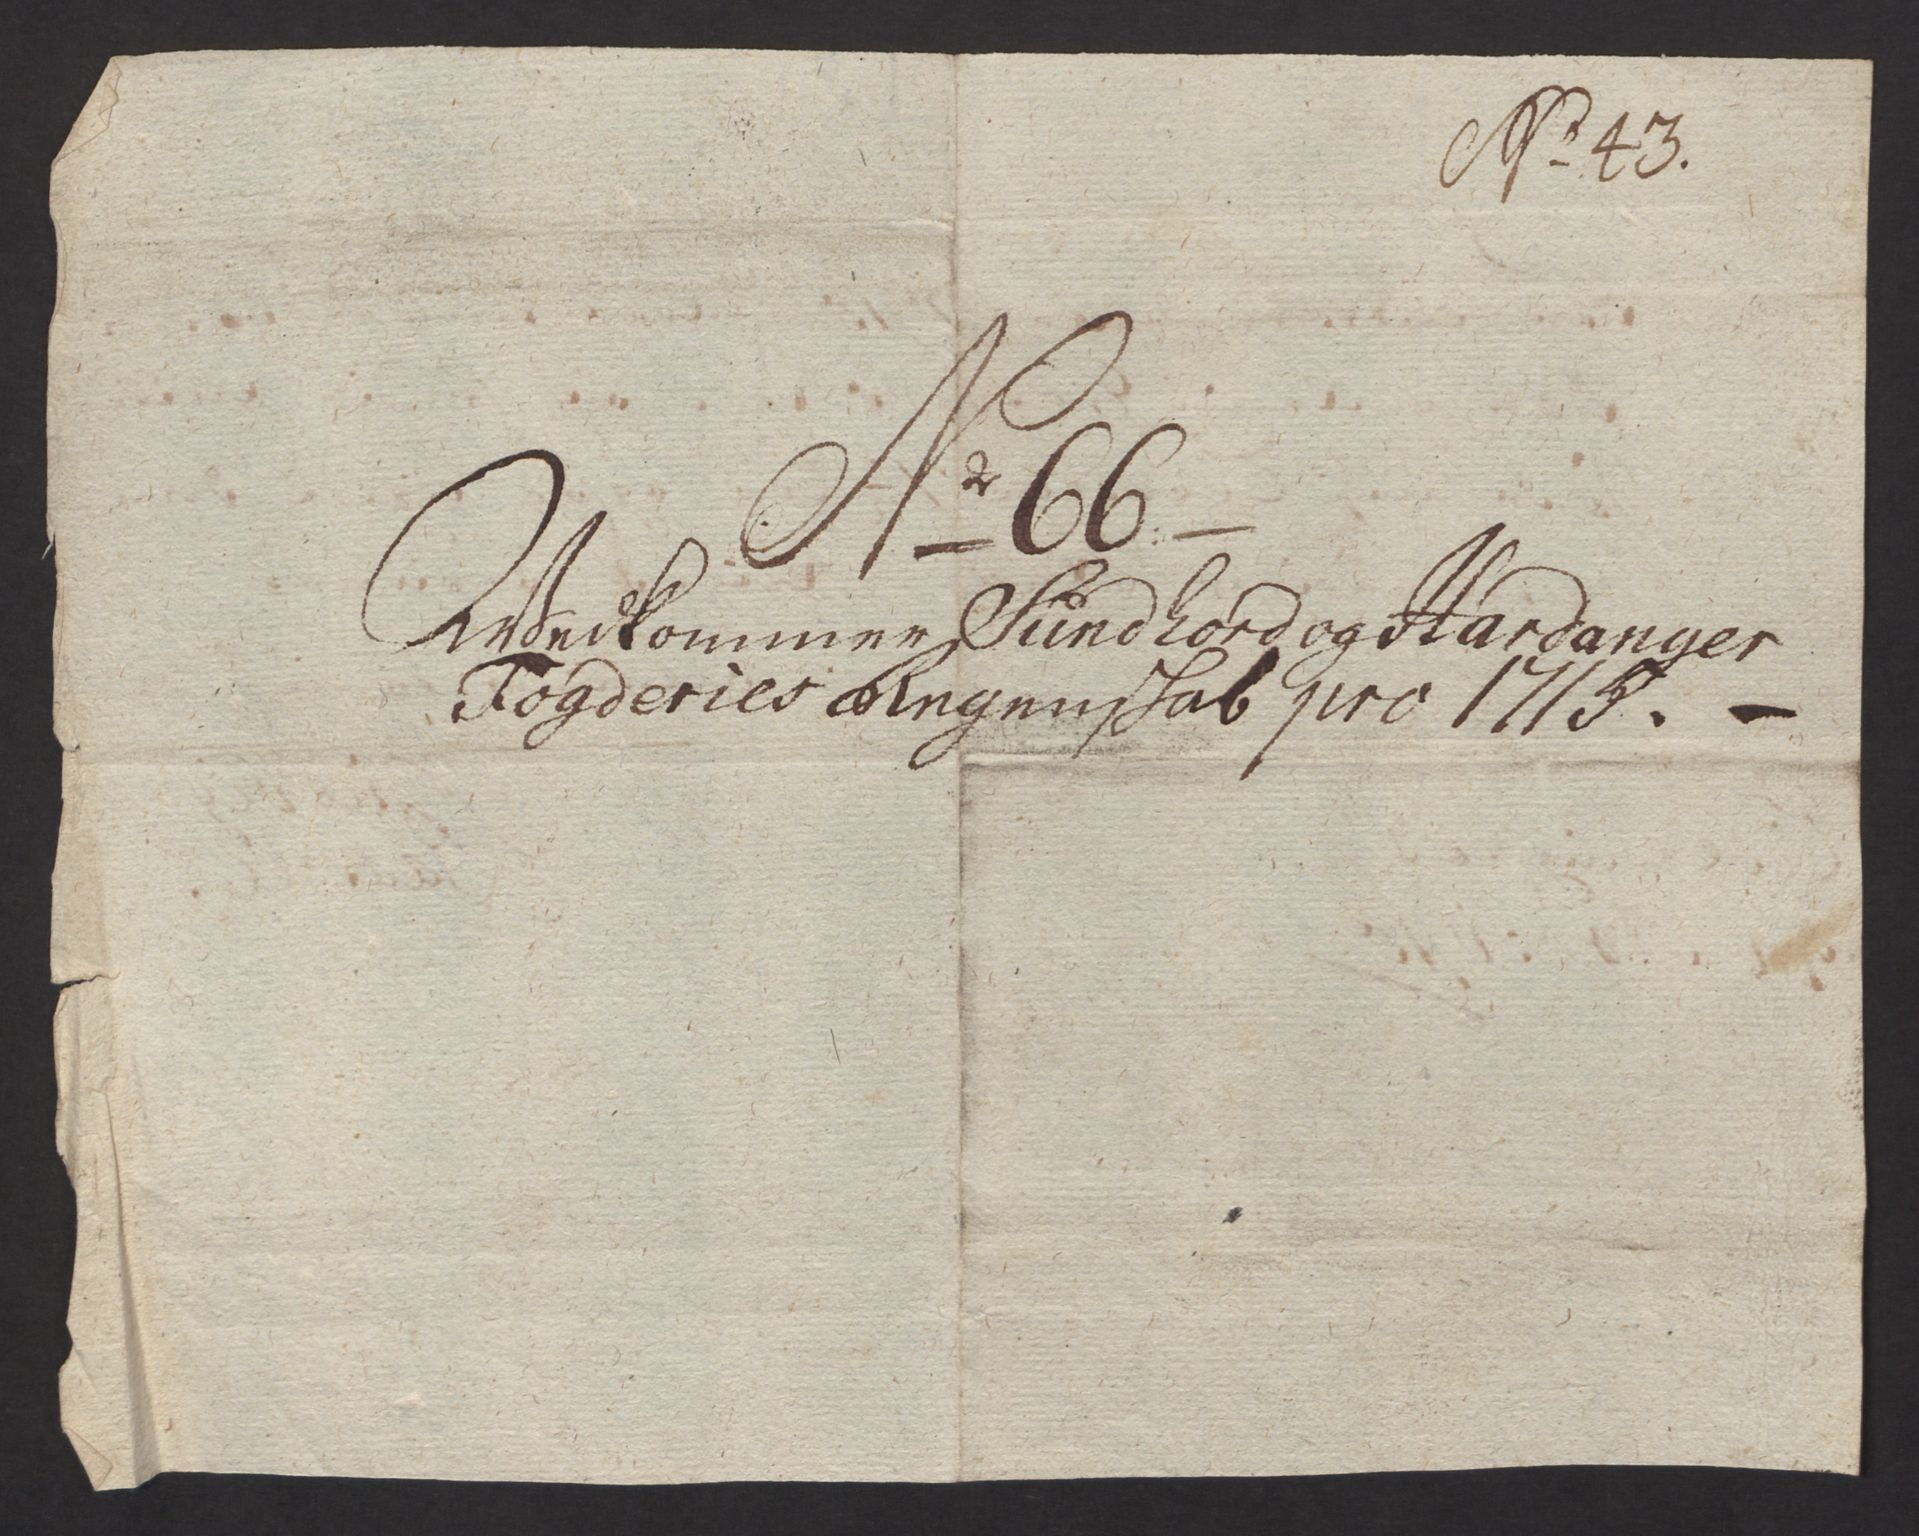 No 43.
No 66 —
Vedkommer Sundhord og Hardanger
Fogderies Regenskab pro 1715. —